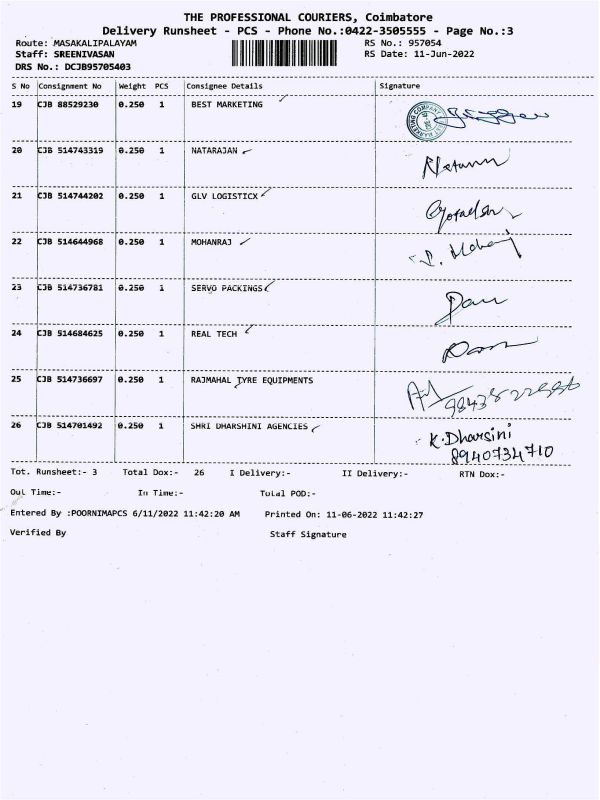 THE PROFESSIONAL COURIERS, Coimbatore
Delivery Runsheet - PCS - Phone No.:0422-3505555 - Page No.:3
Route: MASAKALIPALAYAM RS No.: 957054
Staff: SREENIVASAN RS Date: 11-Jun-2022
DRS No.: DCJB95705403
S No Consignment No Weight PCS Consignee Details Signature
19 CJB 88529230 0.250 1 BEST MARKETING
20 CJB 514743319 0.250 1 NATARAJAN
21 CJB 514744202 0.250 1 GLV LOGISTICX
22 CJB 514644968 0.250 1 MOHANRAJ
23 CJB 514736781 0.250 1 SERVO PACKINGS
24 CJB 514684625 0.250 1 REAL TECH
25 CJB 514736697 0.250 1 RAJMAHAL TYRE EQUIPMENTS
26 CJB 514701492 0.250 1 SHRI DHARSHINI AGENCIES K.Dharsini
8940734710
Tot. Runsheet:- 3 Total Dox:- 26 I Delivery:- II Delivery:- RTN Dox:-
Out Time:- In Time:- Total POD:-
Entered By :POORNIMAPCS 6/11/2022 11:42:20 AM Printed On: 11-06-2022 11:42:27
Verified By Staff Signature